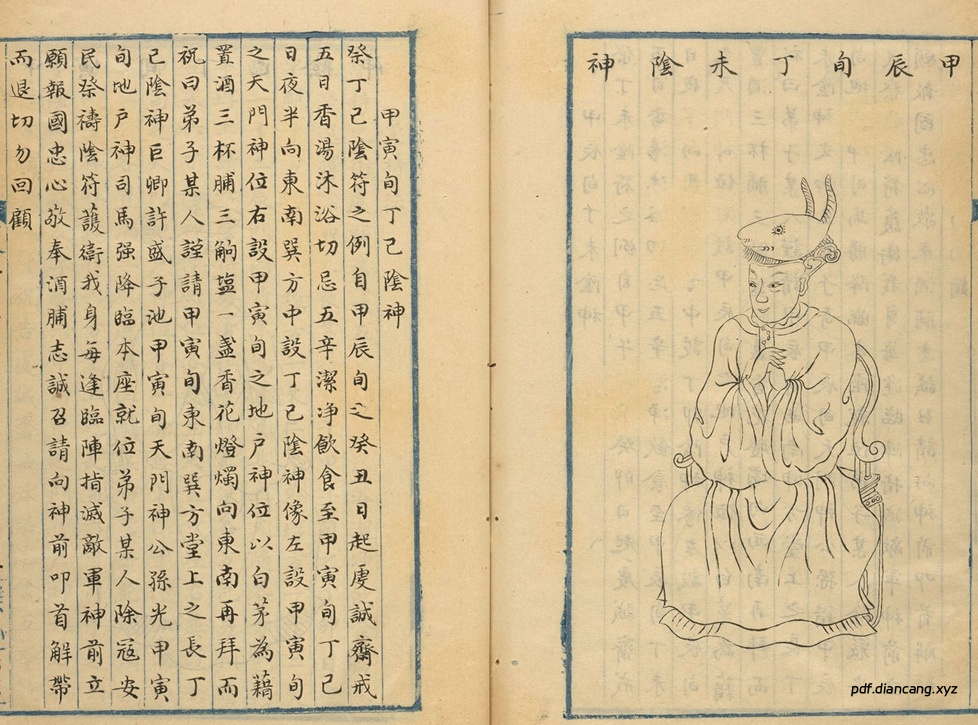 甲辰旬丁未陰神
甲寅旬丁己陰神
祭丁己陰符之例自甲辰旬之癸丑日起虔誠齋戒
五日香湯沐浴切忌五辛潔净飲食至甲寅旬丁己
日夜半向東南巽方中設丁己陰神像左設甲寅旬
之天門神位右設甲寅旬之地戶神位以白茅為藉
置酒三杯脯三觔塩一盞香花燈燭向東南再拜而
祝曰弟子某人謹請甲寅旬東南巽方堂上之長丁
己陰神巨卿許盛子池甲寅旬天門神公孫光甲寅
旬地戶神司馬强降臨本座就位弟子某人除寇安
民祭禱陰符護衛我身每逢臨陣指滅敵軍神前立
願報國忠心敬奉酒脯志誠召請向神前叩首解帶
而退切勿回顧
pdf.diancang.xyz